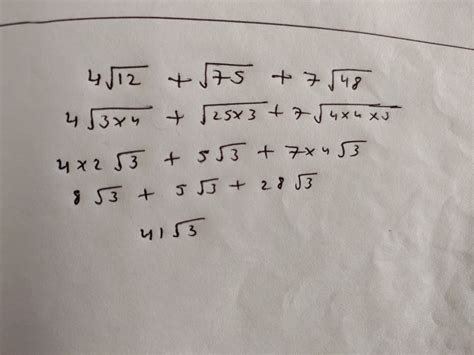 4√12 + √75 + 7√48
4√3×4 + √25×3 + 7√4×4×3
4×2√3 + 5√3 + 7×4√3
8√3 + 5√3 + 28√3
41√3